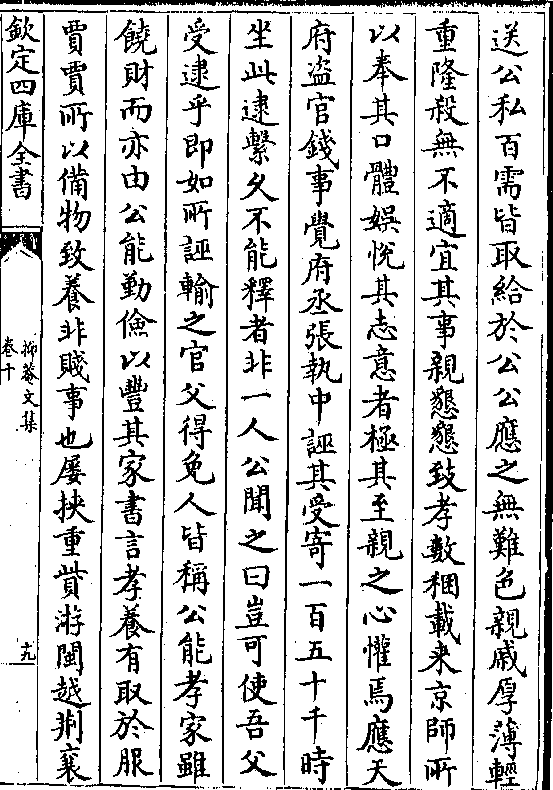 送公私百需皆取給於公公應之無難色親戚厚薄輕
重隆殺無不適宜其事親懇懇致孝數稛載来京師所
以奉其口體娯悅其志意者極其至親之心懽焉應天
府盗官錢事覺府丞張執中誣其受寄一百五十千時
坐此逮繫久不能釋者非一人公聞之曰豈可使吾父
受逮乎即如所誣輸之官父得免人皆稱公能孝家雖
饒財而亦由公能勤儉以豐其家書言孝養有取於服
賈賈所以備物致養非賤事也屡挾重貲游閩越荆襄
欽定四庫全書
抑菴文集
卷十
十九